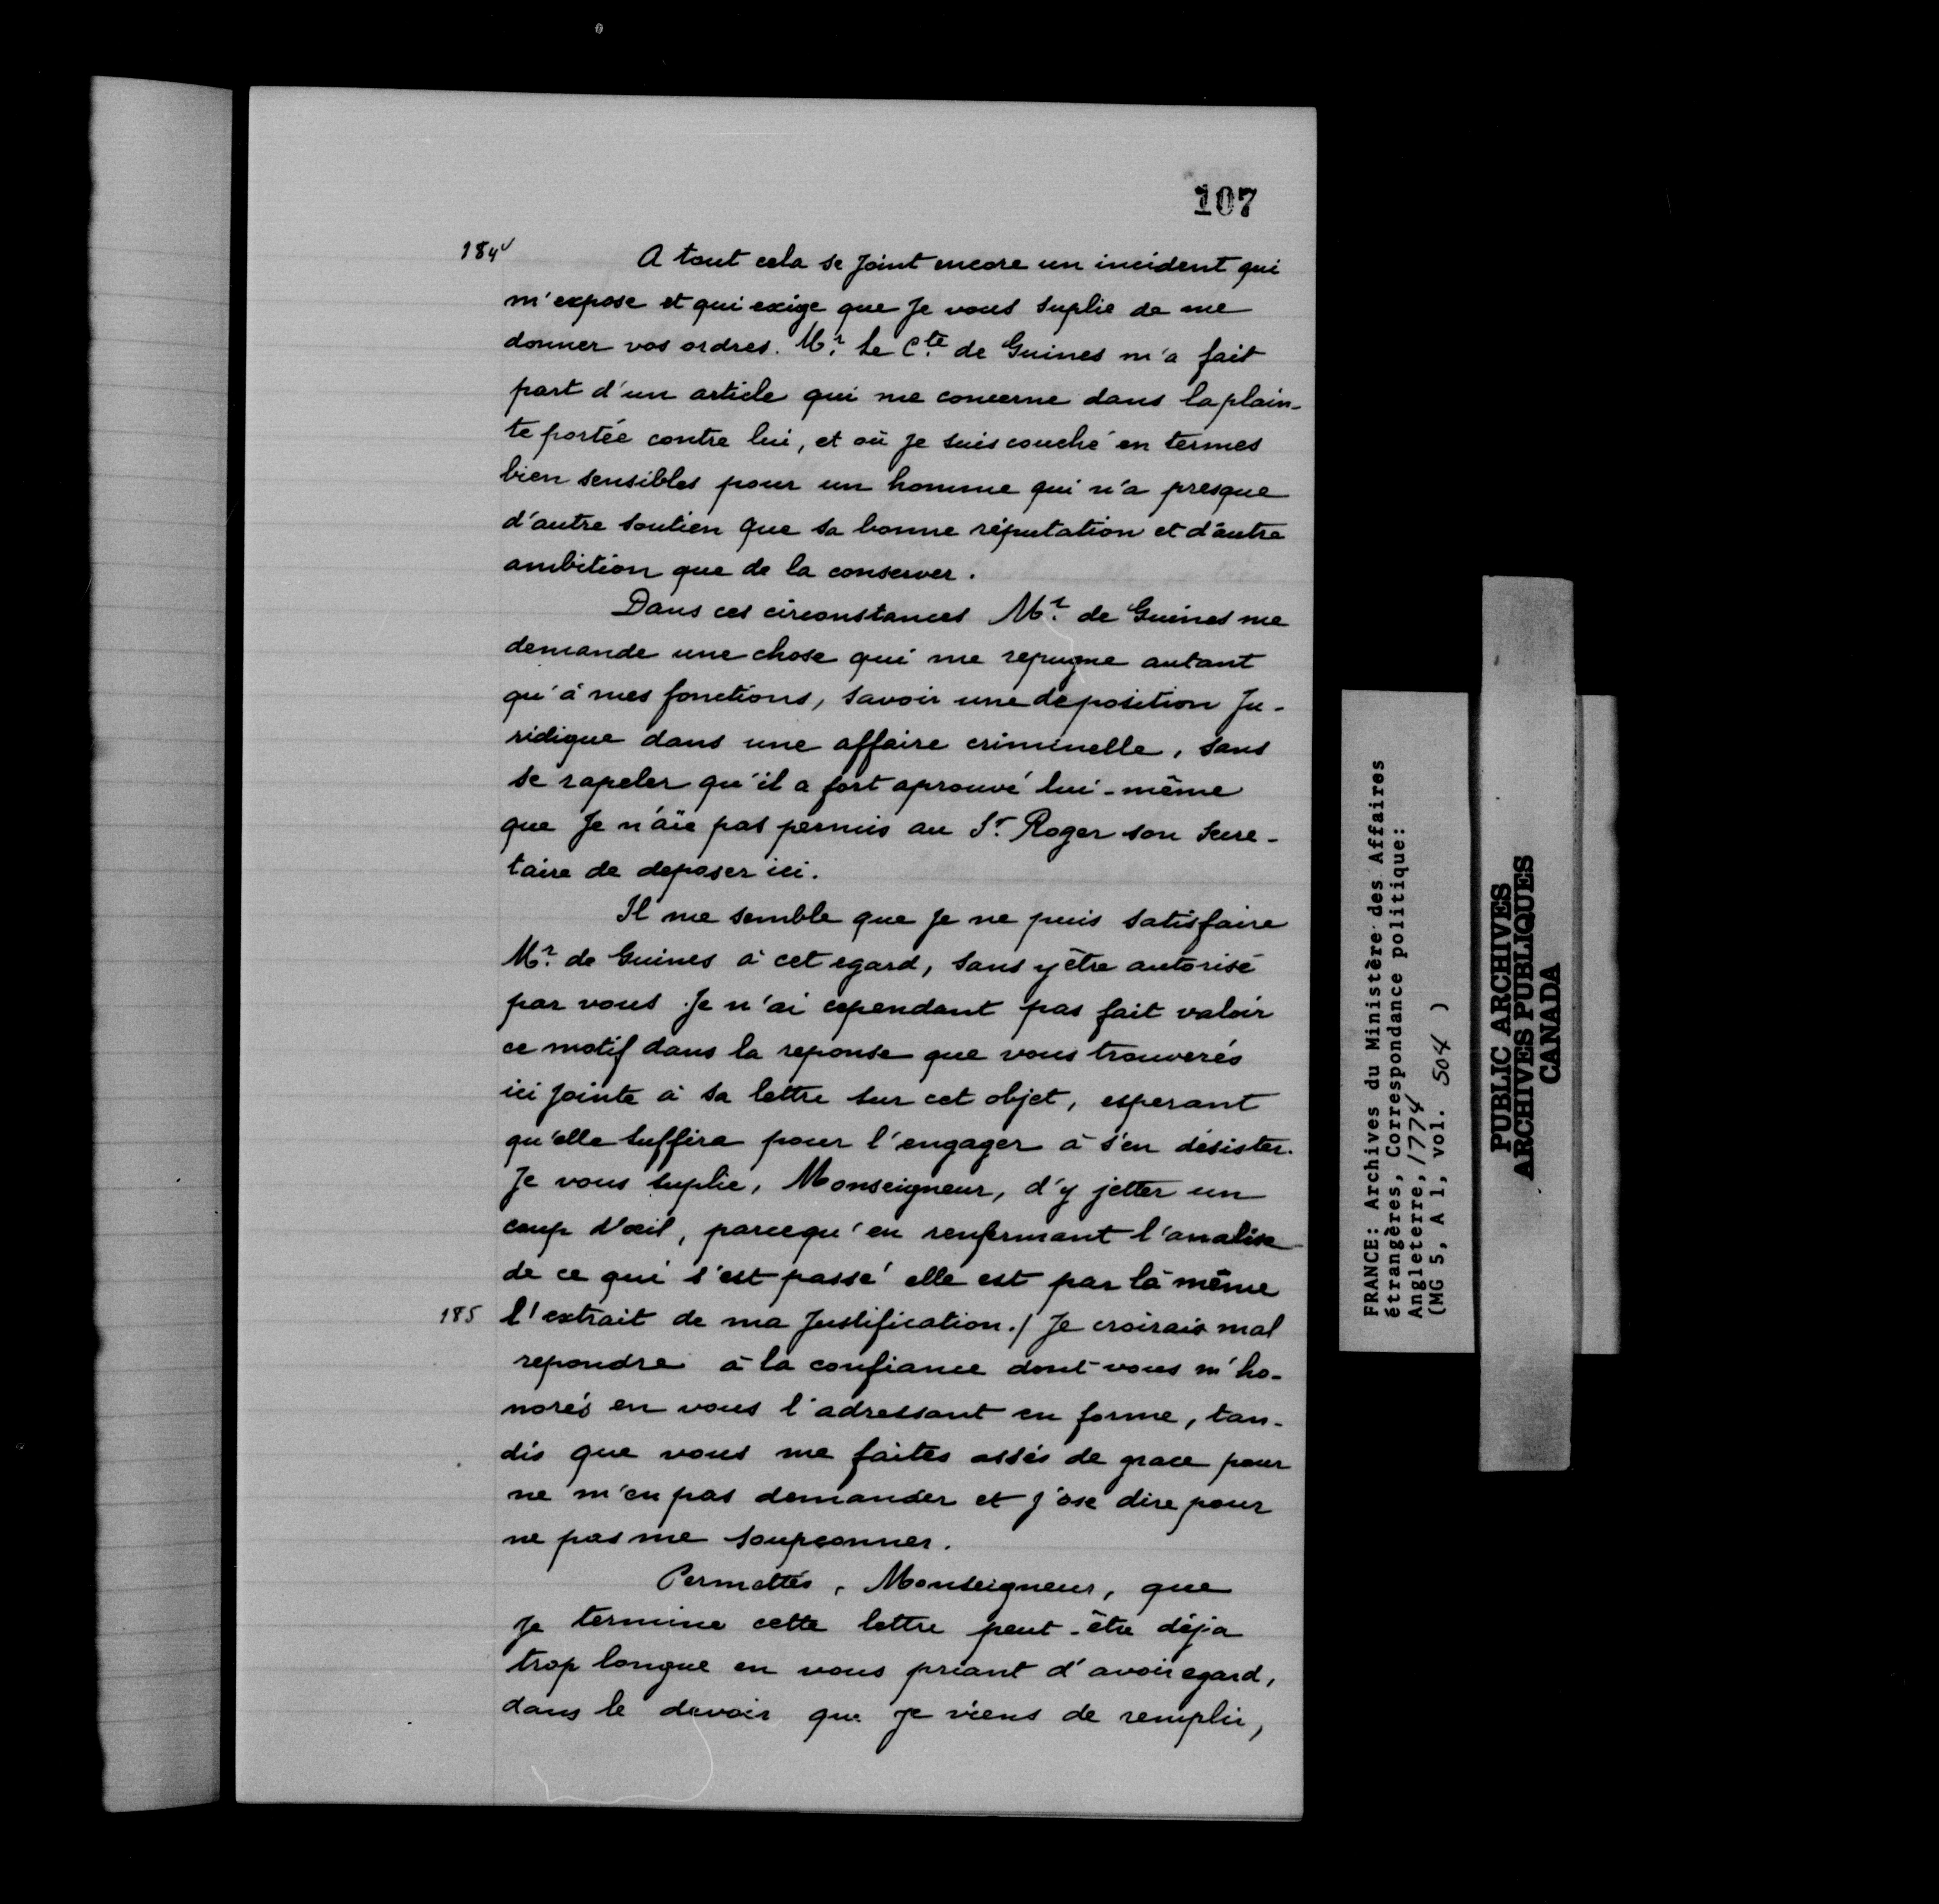 107
184v
A tout cela se Joint encore un incident qui
m'expose et qui exige que Je vous suplie de me
donner vos ordres. Mr. le Cte. de Guines m'a fait
part d'un article qui me concerne dans la plain-
te portée contre lui, et où Je suis couché en termes
bien sensibles pour un homme qui n'a presque
d'autre soutien que sa bonne réputation et d'autre
ambition que de la conserver.
Dans ces circonstances Mr. de Guines me
demande une chose qui me repugne autant
qu'à mes fonctions, savoir une deposition Ju-
ridique dans une affaire criminelle, sans
se rapeler qu'il a fort aprouvé lui-même
que Je n'aïe pas permis au Sr Roger son Secre-
taire de deposer ici.
Il me semble que Je ne puis satisfaire
Mr. de Guines à cet egard, sans y être autorisé
par vous. Je n'ai cependant pas fait valoir
ce motif dans la reponse que vous trouverés
ici jointe à sa lettre sur cet objet, esperant
qu'elle suffira pour l'engager à s'en désister.
Je vous suplie, Monseigneur, d'y jetter un
coup d'œil, parcequ'en renfermant l'analise
de ce qui s'est passé elle est par là même
185
l'extrait de ma Justification./ Je croirais mal
repondre à la confiance dont vous m'ho-
norés en vous l'adressant en forme, tan-
dis que vous me faites assés de grace pour
ne m'en pas demander et j'ose dire pour
ne pas me soupçonner.
Permettés, Monseigneur, que
Je termine cette lettre peut-être déja
trop longue en vous priant d'avoir egard,
dans le devoir que je viens de remplir,
FRANCE: Archives du Ministère des Affaires
étrangères, Correspondance politique:
Angleterre, 1774
(MG 5, A 1, vol. 504 )
PUBLIC ARCHIVES
ARCHIVES PUBLIQUES
CANADA